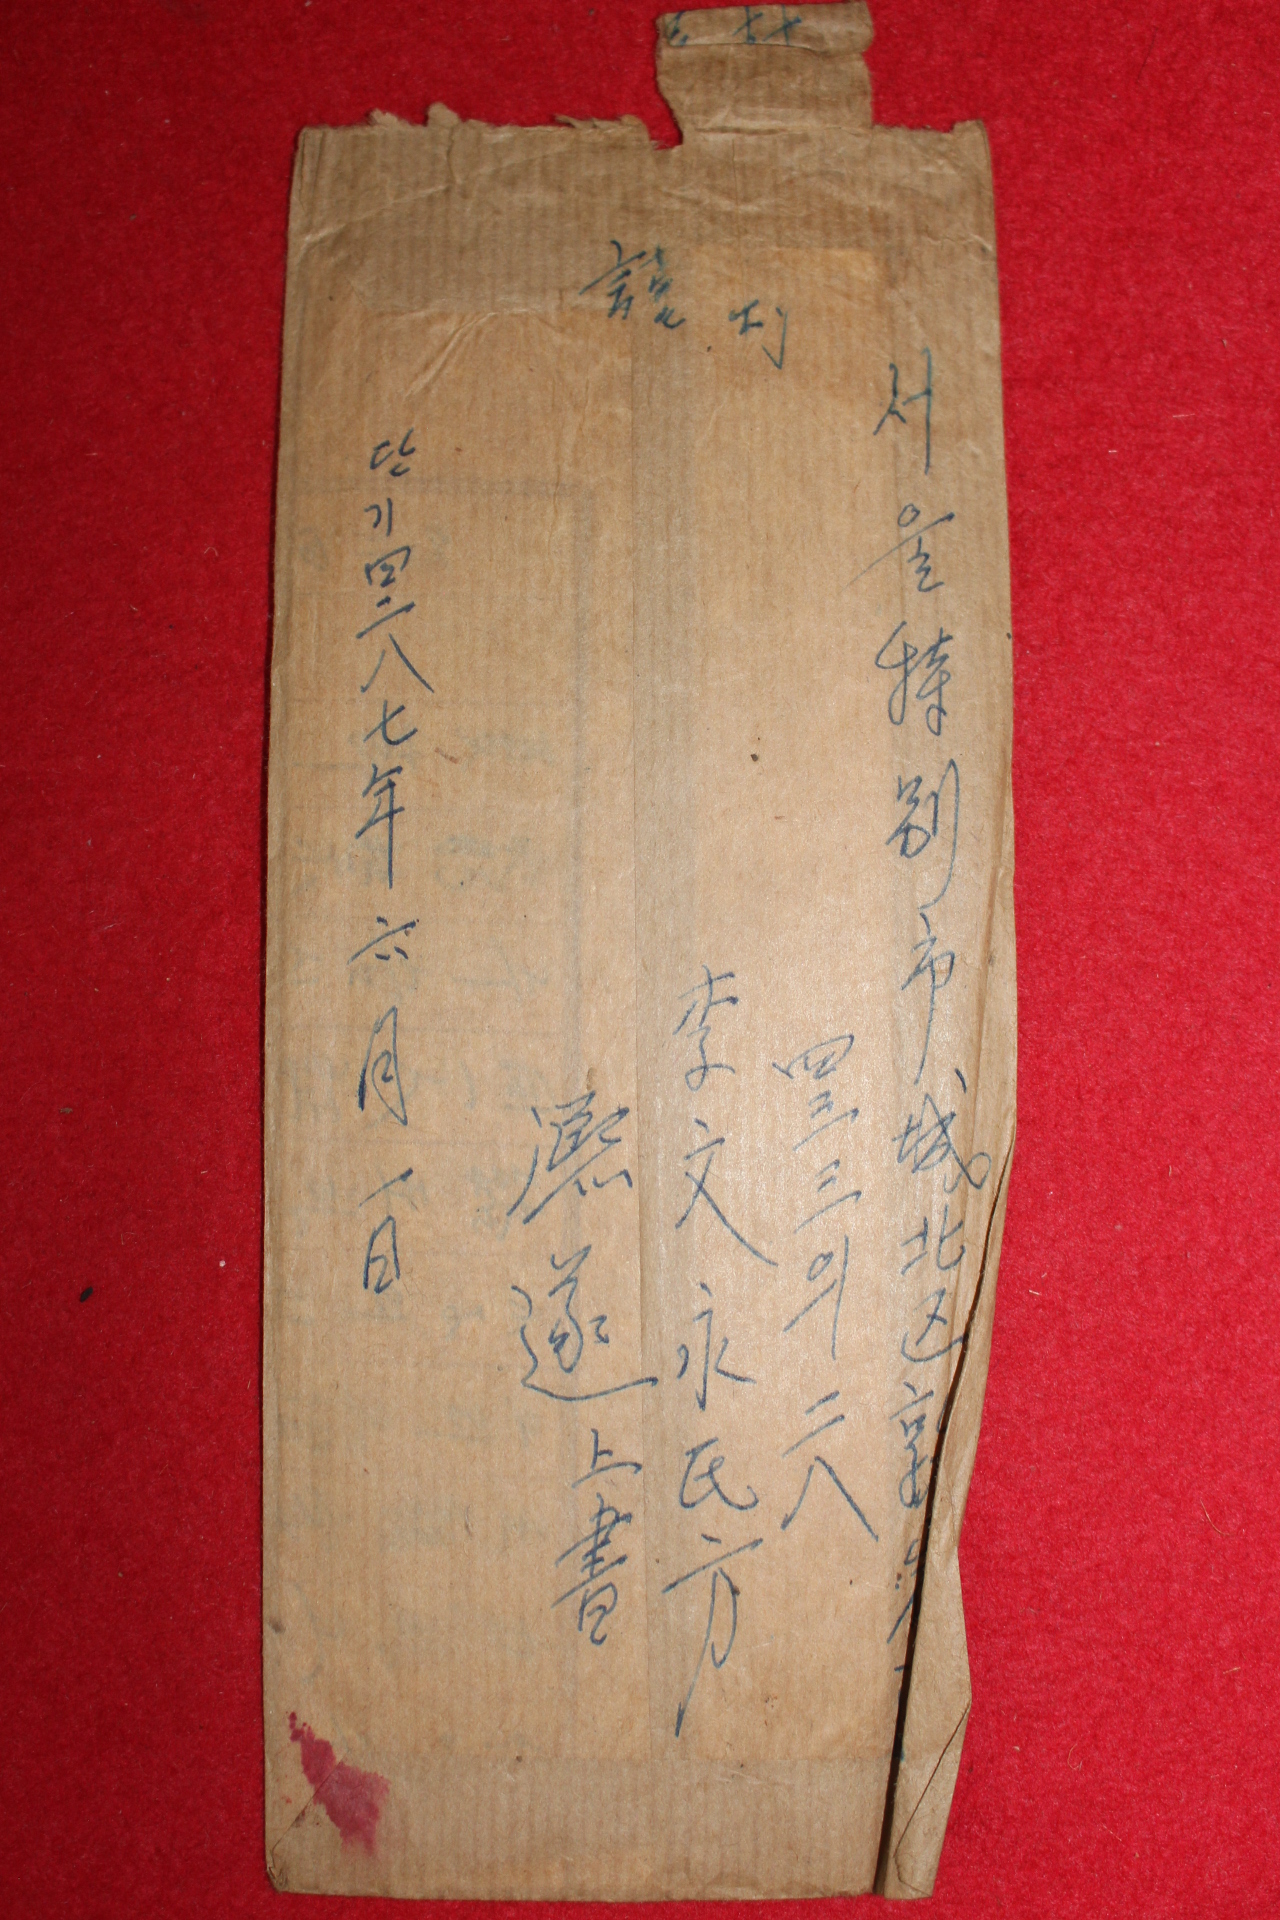 서울特別市城北区
四三三의 二八
李文永氏方
遂上書
단기四二八七年 六月 一日